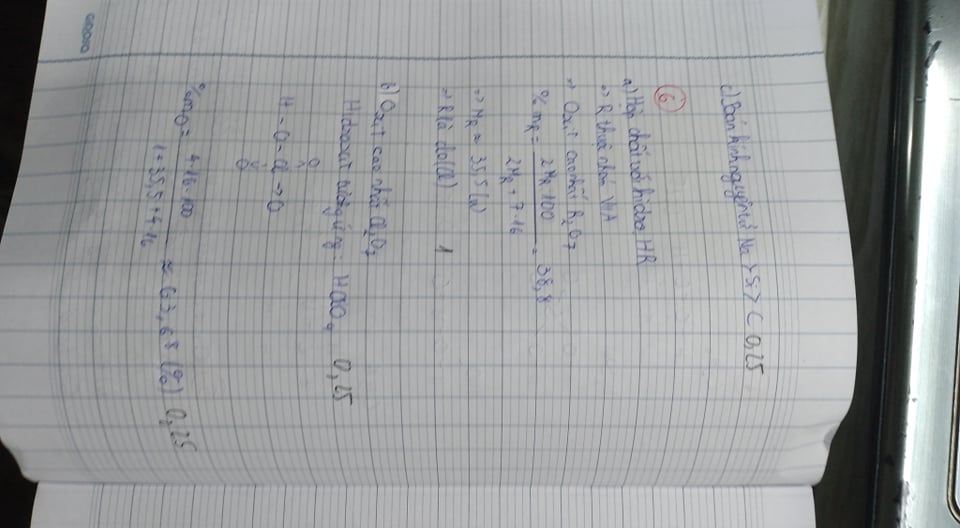 c) Bán kính nguyên tử Na > Si > C 0,25
6
a) Hợp chất với hidro, HR
=> R thuộc nhóm VIIA
=> Oxit cao nhất R2O7
% mR = 2MR.100 / 2MR + 7.16 = 38,8
=> MR ≈ 35,5 (u)
=> R là clo (Cl) 1
b) Oxit cao nhất Cl2O7
Hidroxit tương ứng: HClO4 0,25
O
H - O - Cl -> O
O
% mO = 4.16.100 / 1 + 35,5 + 4.16 ≈ 63,68 (%) 0,25